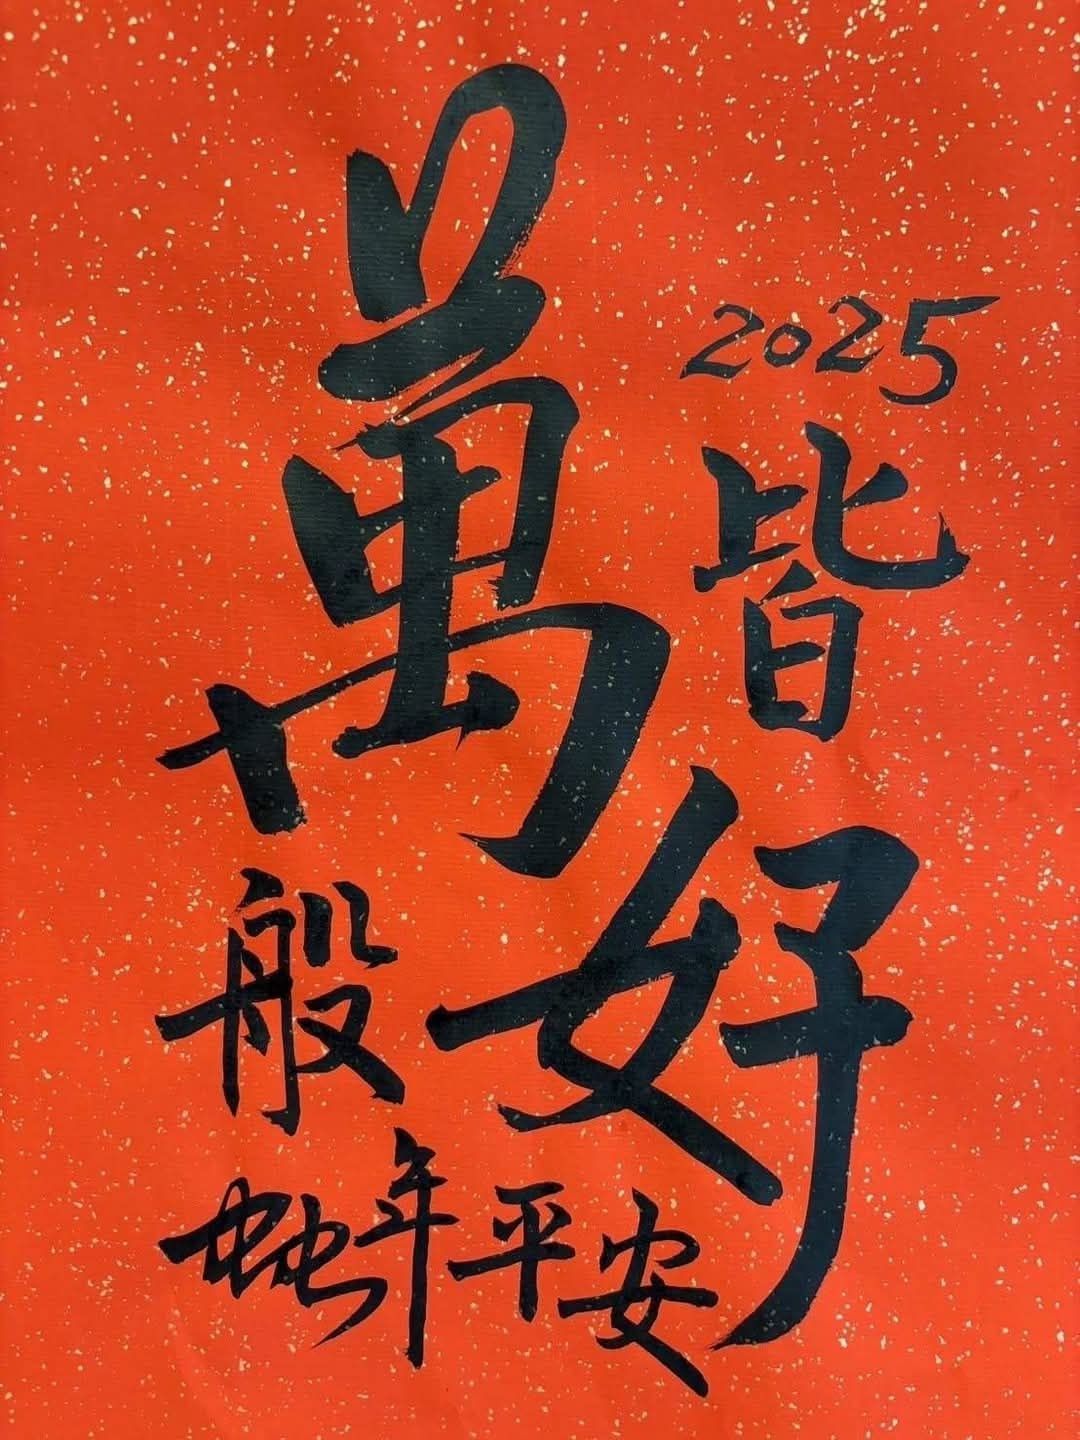 萬般
2025
皆好
蛇年平安